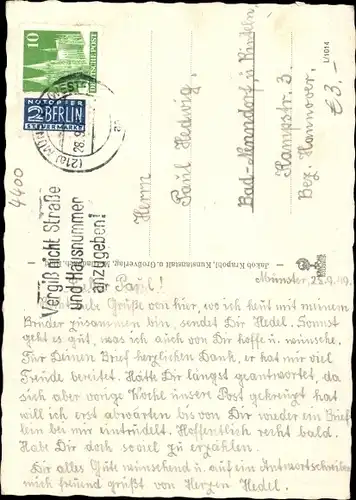 10
DEUTSCHE POST
NOTOPFER
2 BERLIN
STEUERMARKE
(21a) MÜNSTER
Vergiß nicht Straße
und Hausnummer
anzugeben!
4400
L/1014
€ 3,-
Herrn
Paul Hedwig,
Bad-Nenndorf, ü. Rinteln,
Kampstr. 3.
Bez. Hannover,
Jakob Krapohl, Kunstanstalt u. Großverlag,
Münster, 25.9.49.
Paul!
liebe Grüße von hier, wo ich heut mit meinem
Bruder zusammen bin, sendet Dir Hedel. Sonst
geht es gut, was ich auch von Dir hoffe u. wünsche.
Für Deinen Brief herzlichen Dank, er hat mir viel
Freude bereitet. Hätte Dir längst geantwortet, da
sich aber vorige Woche unsere Post gekreuzt hat
will ich erst abwarten bis von Dir wieder ein Brief
lein bei mir eintrudelt. Hoffentlich recht bald.
Habe Dir doch soviel zu erzählen.
Dir alles Gute wünschend u. auf ein Antwortschreiben
mich freuend grüßt von Herzen Hedel.